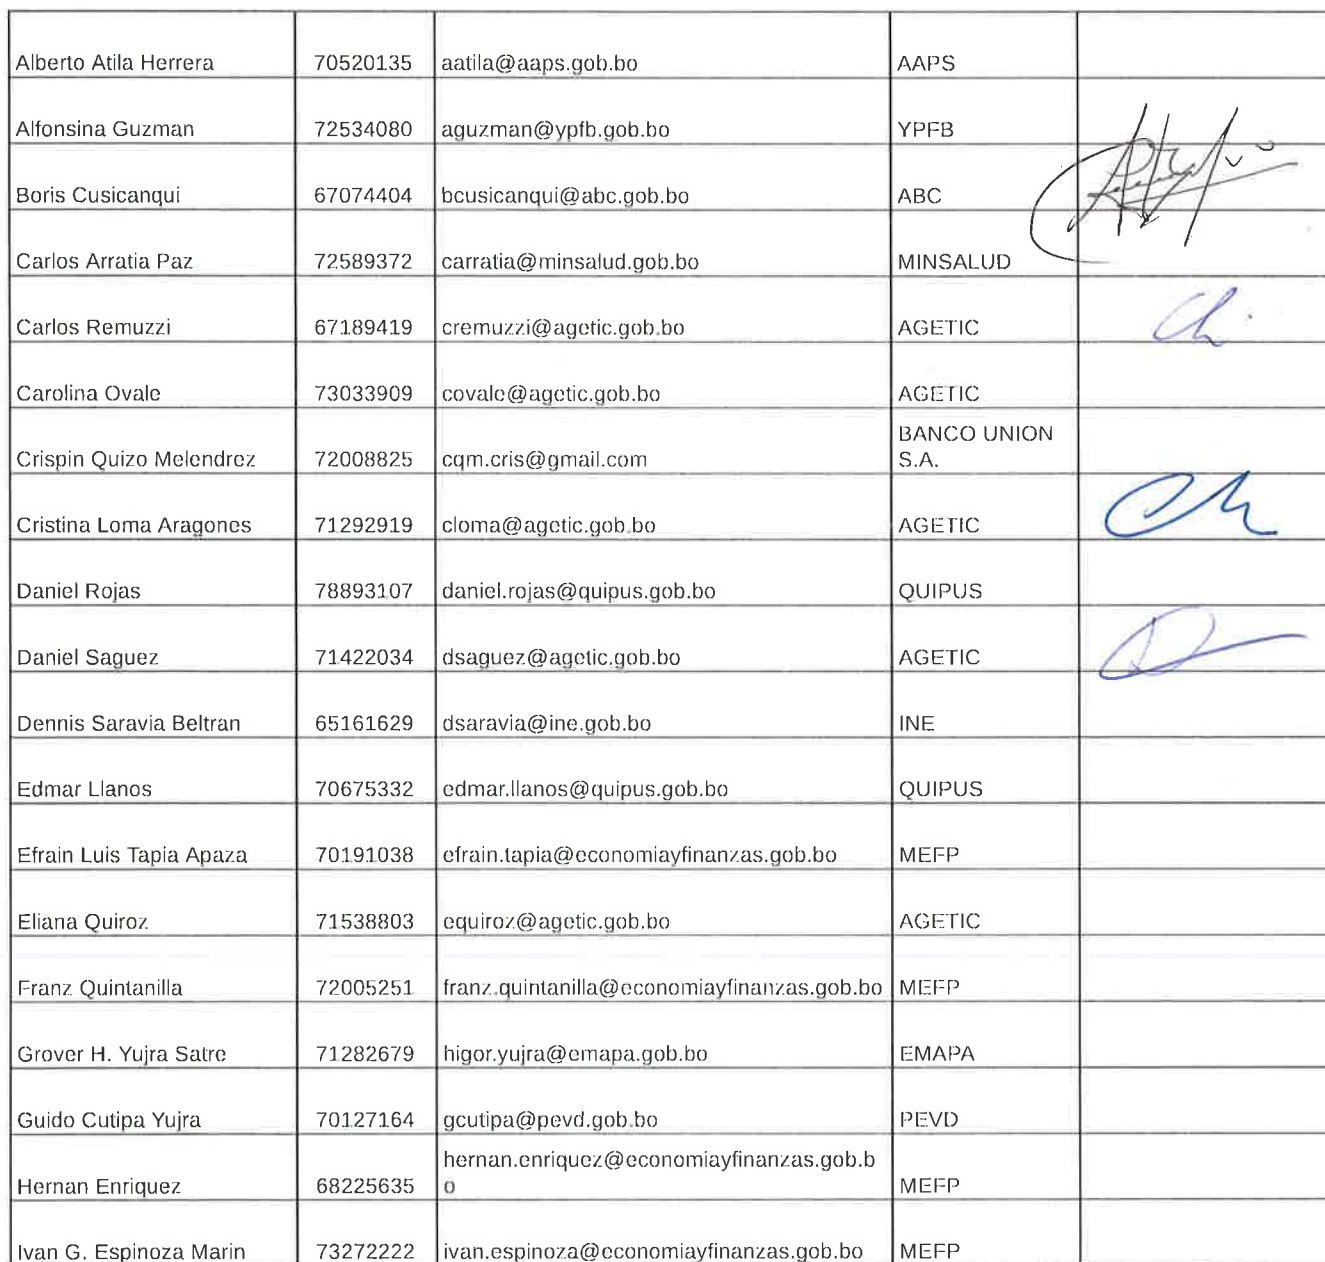 Alberto Atila Herrera 70520135 aatila@aaps.gob.bo AAPS
Alfonsina Guzman 72534080 aguzman@ypfb.gob.bo YPFB
Boris Cusicanqui 67074404 bcusicanqui@abc.gob.bo ABC
Carlos Arratia Paz 72589372 carratia@minsalud.gob.bo MINSALUD
Carlos Remuzzi 67189419 cremuzzi@agetic.gob.bo AGETIC
Carolina Ovale 73033909 covale@agetic.gob.bo AGETIC
BANCO UNION
Crispin Quizo Melendrez 72008825 cqm.cris@gmail.com S.A.
Cristina Loma Aragones 71292919 cloma@agetic.gob.bo AGETIC
Daniel Rojas 78893107 daniel.rojas@quipus.gob.bo QUIPUS
Daniel Saguez 71422034 dsaguez@agetic.gob.bo AGETIC
Dennis Saravia Beltran 65161629 dsaravia@ine.gob.bo INE
Edmar Llanos 70675332 edmar.llanos@quipus.gob.bo QUIPUS
Efrain Luis Tapia Apaza 70191038 efrain.tapia@economiayfinanzas.gob.bo MEFP
Eliana Quiroz 71538803 equiroz@agetic.gob.bo AGETIC
Franz Quintanilla 72005251 franz.quintanilla@economiayfinanzas.gob.bo MEFP
Grover H. Yujra Satre 71282679 higor.yujra@emapa.gob.bo EMAPA
Guido Cutipa Yujra 70127164 gcutipa@pevd.gob.bo PEVD
hernan.enriquez@economiayfinanzas.gob.b
Hernan Enriquez 68225635 o MEFP
Ivan G. Espinoza Marin 73272222 ivan.espinoza@economiayfinanzas.gob.bo MEFP